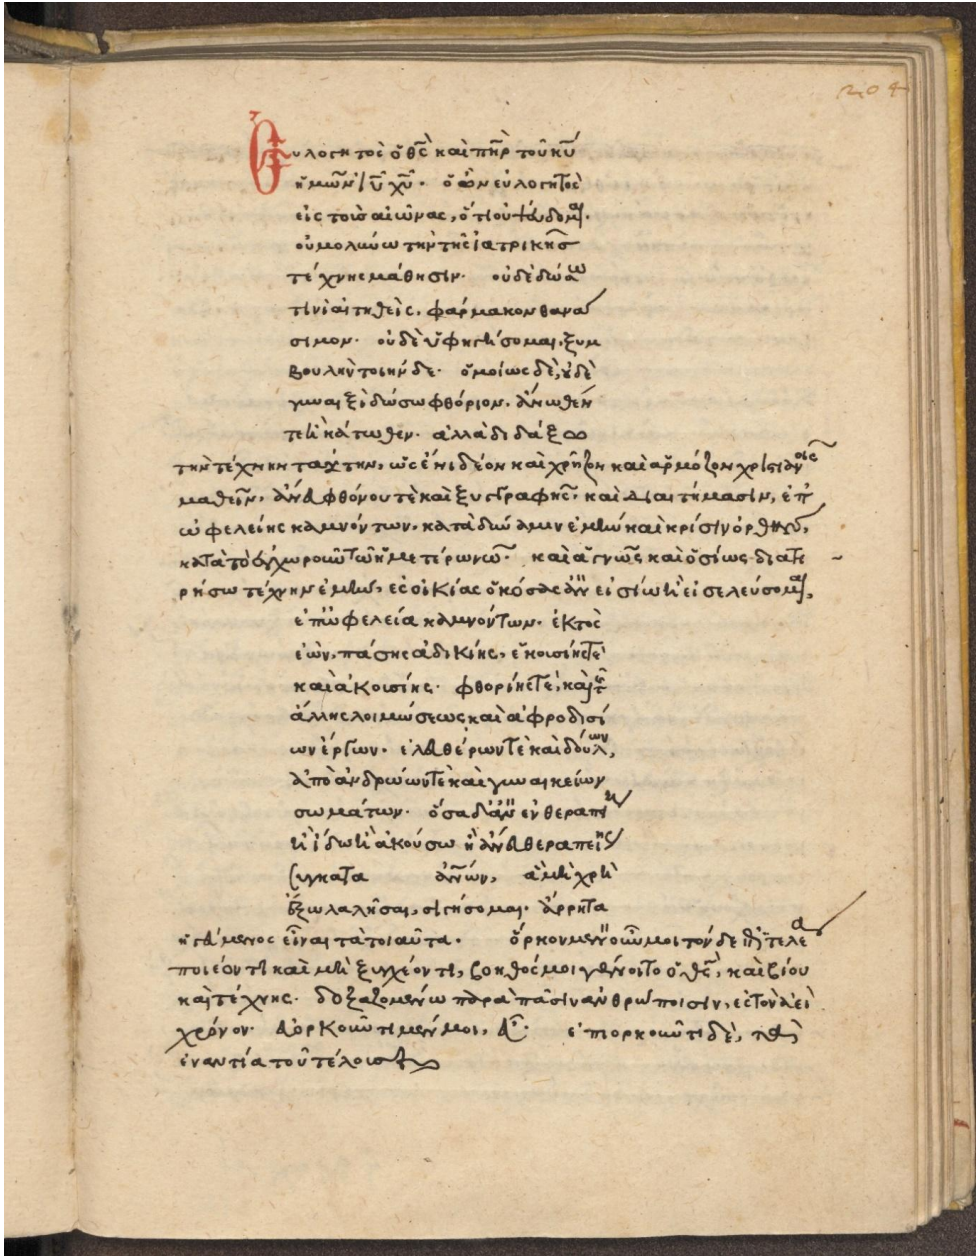 204
Εὐλογητὸς ὁ θς καὶ πηρ τοῦ κυ
ἡμῶν ιυ χυ. ὁ ὢν εὐλογητὸς
εἰς τοὺς αἰῶνας, ὅτι οὐ ψεύδομαι.
οὐ μολυνῶ τὴν τῆς ἰατρικῆς
τέχνης μάθησιν. οὐδὲ δώσω
τινὶ αἰτηθεὶς, φάρμακον θανά
σιμον. οὐδὲ ὑφηγήσομαι, ξυμ
βουλὴν τοιήνδε. ὁμοίως δὲ, οὐδὲ
γυναιξὶ δώσω φθόριον. ἄνωθέν
τε ἢ κάτωθεν. ἀλλὰ διδάξω
τὴν τέχνην ταύτην,
μαθεῖν. ἄνευ φθόνου τὲ καὶ ξυγγραφῆς. καὶ διαιτήμασιν, ἐπ
ὠφελείης καμνόντων. κατὰ δύναμιν ἐμὴν καὶ κρίσιν
καὶ ἁγνῶς καὶ ὁσίως διατη
ρήσω τέχνην ἐμὴν, ἐς οἰκίας ὁκόσας ἂν εἰσίω ἢ εἰσελεύσομαι,
ἐπ ὠφελεία καμνόντων. ἐκτὸς
ἐὼν, πάσης ἀδικίης, ἑκουσίης τὲ
καὶ ἀκουσίης. φθορίης τὲ, καὶ τῆς
ἄλλης λοιμώσεως καὶ ἀφροδισί
ων ἔργων. ἐλευθέρων τὲ καὶ δούλων,
ἀπὸ ἀνδρώων τὲ καὶ γυναικείων
σωμάτων. ὅσα δ' ἂν ἐν θεραπείη
ἢ ἴδω ἢ ἀκούσω ἢ ἄνευ θεραπείης
κατα ἀνων, ἃ μὴ χρὴ
ἔξω λαλῆσαι, σιγήσομαι. ἄρρητα
ἡγεύμενος εἶναι τὰ τοιαῦτα. ὅρκον μὲν οὖν μοι τόνδε ἐπιτελέα
ποιέοντι καὶ μὴ ξυγχέοντι, βοηθός μοι γένοιτο ὁ θς, καὶ βίου
καὶ τέχνης. δοξαζομένω παρὰ πᾶσιν ἀνθρώποισιν, ἐς τὸν ἀεὶ
χρόνον. εὐορκοῦντι μέν μοι, εὖ. ἐπιορκοῦντι δὲ,
ἐναντία τοῦ τέλους